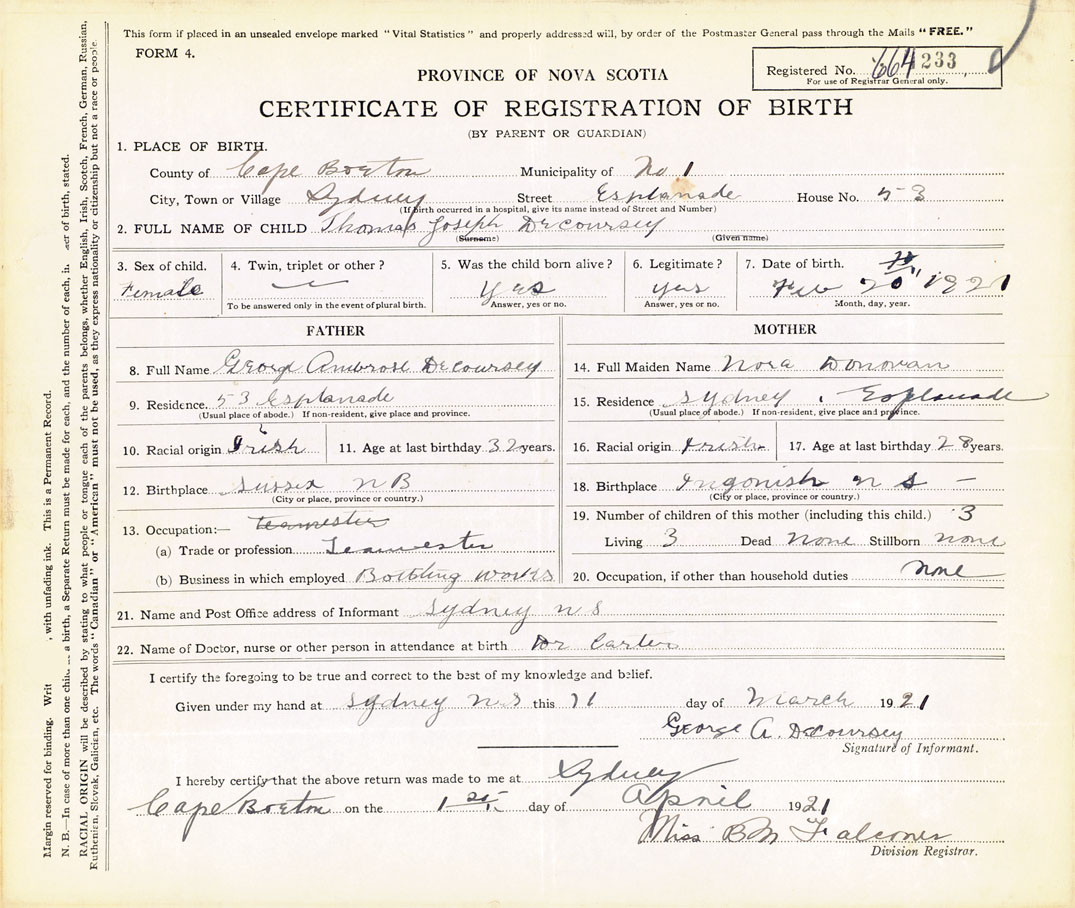 This form if placed in an unsealed envelope marked "Vital Statistics" and properly addressed will, by order of the Postmaster General pass through the Mails "FREE."
FORM 4.
PROVINCE OF NOVA SCOTIA
Registered No. 664 233
For use of Registrar General only.
CERTIFICATE OF REGISTRATION OF BIRTH
(BY PARENT OR GUARDIAN)
1. PLACE OF BIRTH.
County of Cape Breton Municipality of No 1
City, Town or Village Sydney Street Esplanade House No. 53
(If birth occurred in a hospital, give its name instead of Street and Number)
2. FULL NAME OF CHILD Thomas Joseph DeCoursey
(Surname) (Given name)
3. Sex of child. 4. Twin, triplet or other? 5. Was the child born alive? 6. Legitimate? 7. Date of birth.
Female yes yes Feb 20 1921
To be answered only in the event of plural birth. Answer, yes or no. Answer, yes or no. Month, day, year.
FATHER MOTHER
8. Full Name George Ambrose DeCoursey
9. Residence. 53 Esplanade
(Usual place of abode.) If non-resident, give place and province.
10. Racial origin Irish 11. Age at last birthday 32 years.
12. Birthplace Sussex N B
(City or place, province or country.)
13. Occupation:— teamester
(a) Trade or profession Teamester
(b) Business in which employed Bottling works
14. Full Maiden Name Nora Donovan
15. Residence Sydney . Esplanade
(Usual place of abode.) If non-resident, give place and province.
16. Racial origin Irish 17. Age at last birthday 28 years.
18. Birthplace Ingonish N S –
(City or place, province or country.)
19. Number of children of this mother (including this child.) 3
Living 3 Dead None Stillborn none
20. Occupation, if other than household duties none
21. Name and Post Office address of Informant Sydney N S
22. Name of Doctor, nurse or other person in attendance at birth Dr Carter
I certify the foregoing to be true and correct to the best of my knowledge and belief.
Given under my hand at Sydney N.S this 11 day of March 1921
George A. DeCoursey
Signature of Informant.
I hereby certify that the above return was made to me at Sydney
Cape Breton on the 1st day of April 1921
Miss B M Falconer
Division Registrar.
Margin reserved for binding. Writ , with unfading ink. This is a Permanent Record.
N. B.—In case of more than one chil a birth, a Separate Return must be made for each, and the number of each, in of birth, stated.
RACIAL ORIGIN will be described by stating to what people or tongue each of the parents belongs, whether English, Irish, Scotch, French, German, Russian,
Ruthenian, Slovak, Galician, etc. The words "Canadian" or "American" must not be used, as they express nationality or citizenship but not a race or people.